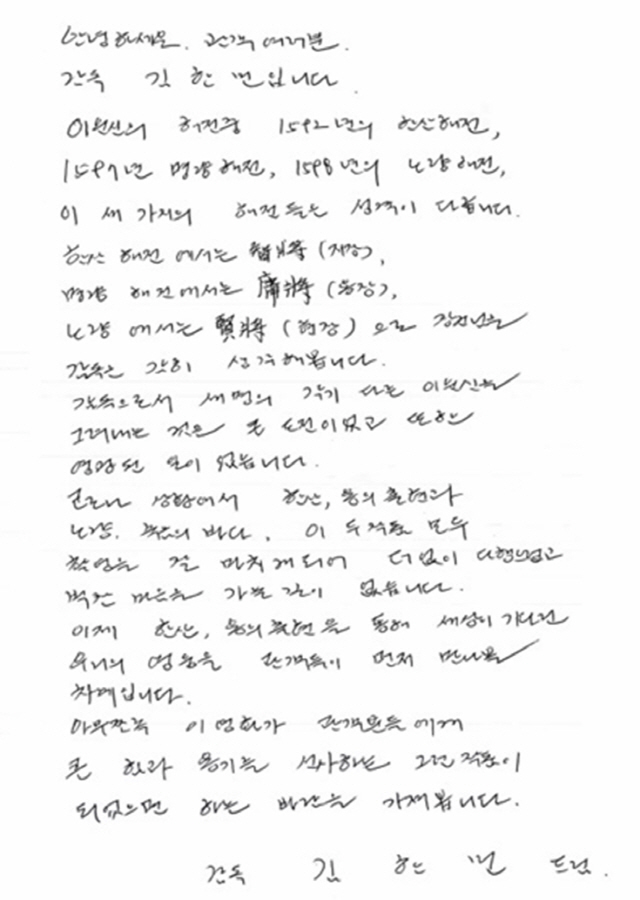 안녕하세요. 관객여러분.
감독 김한민입니다.
이순신의 해전중 1592년의 한산해전,
1597년 명량해전, 1598년의 노량해전,
이 세 가지의 해전들은 성격이 다릅니다.
한산 해전에서는 智將 (지장),
명량 해전에서는 庸將 (용장),
노량에서는 賢將 (현장)으로 장군님을
감독은 감히 생각해봅니다.
감독으로서 세명의 각기 다른 이순신을
그려내는 것은 큰 도전이었고 또한
영광된 일이 었습니다.
코로나 상황에서 한산, 용의출현과
노량. 죽음의 바다. 이 두작품 모두
촬영을 잘 마치게되어 더없이 다행스럽고
벅찬 마음을 가눌 길이 없습니다.
이제 한산, 용의출현을 통해 세상이 기다린
우리의 영웅을 관객들이 먼저 만나볼
차례입니다.
아무쪼록 이 영화가 관객분들에게
큰 힘과 용기를 선사하는 그런 작품이
되었으면 하는 바람을 가져봅니다.
감독 김 한 민 드림.